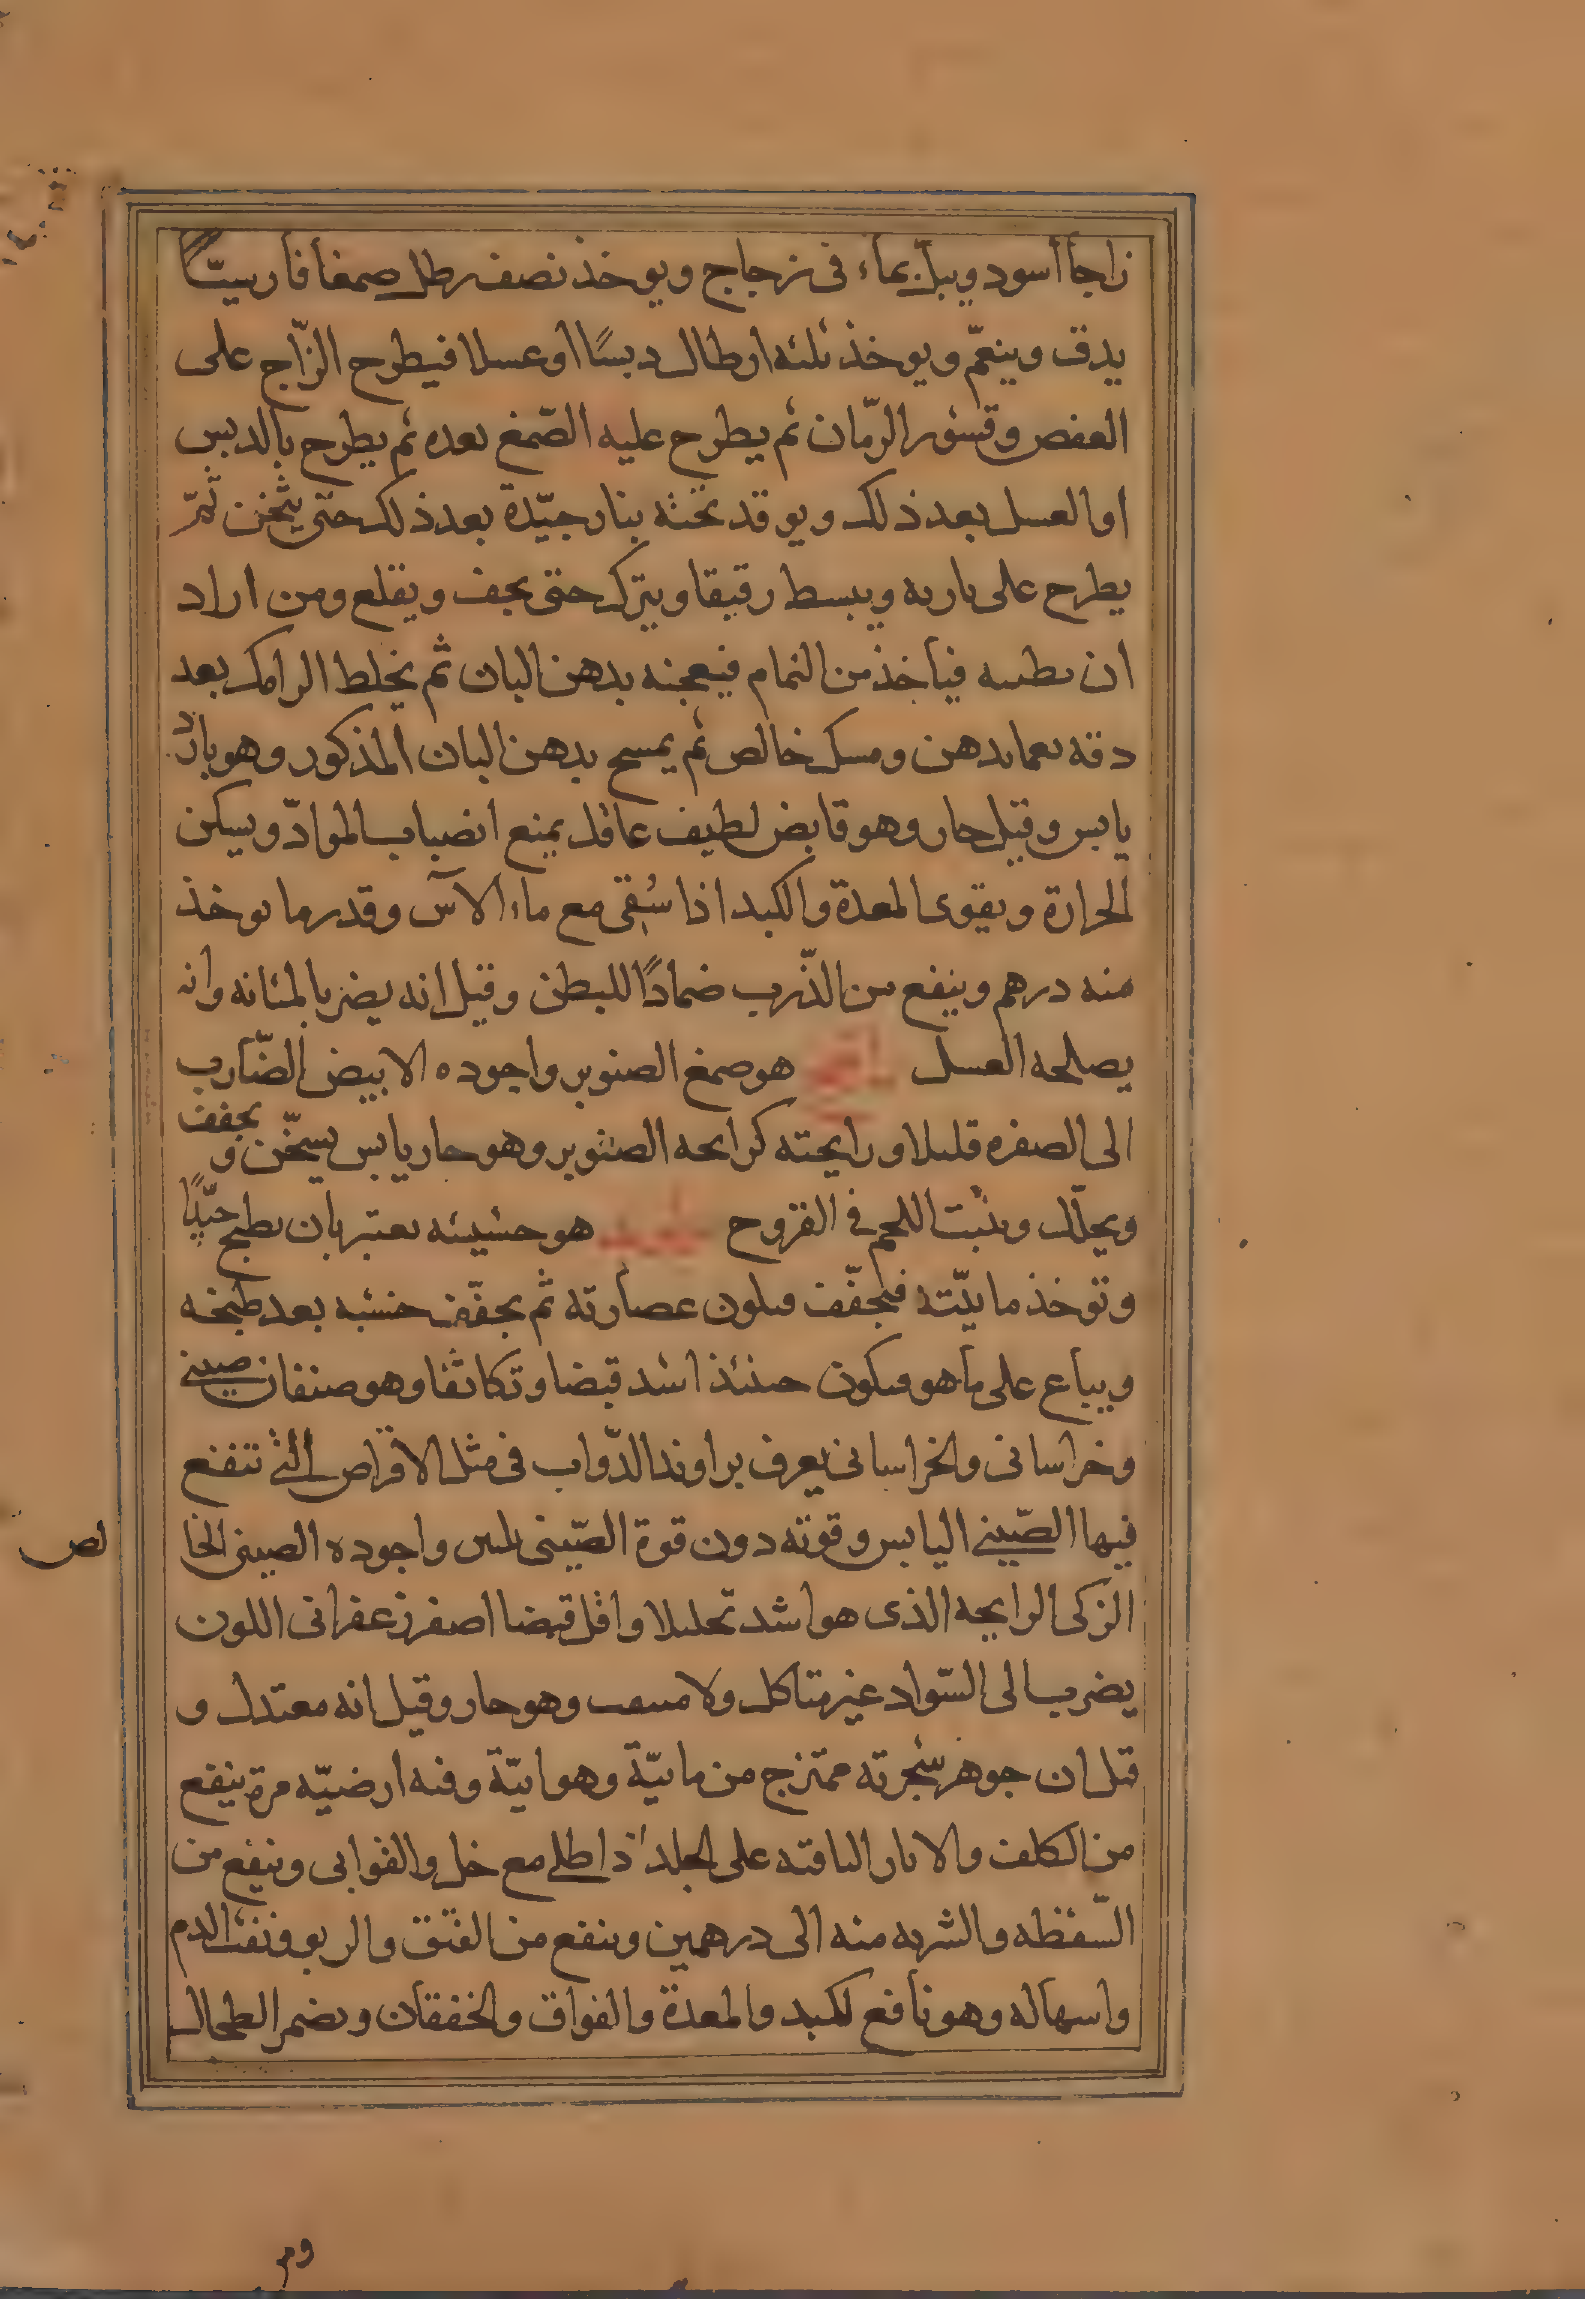 زاجاً أسود ويبل بماء فى زجاج ويوخذ نصف رطل صمغاً فارسيّاً
يدق وينعّم ويوخذ ثلثه ارطال دبسًا او عسلا فيطرح الزّاج على
العفص وقشور الرّمان ثم يطرح عليه الصّمغ بعده ثم يطرح بالدبس
او العسل بعد ذلك ويوقد تحته بنار جيّدة بعد ذلك حتى يثخن ثمّ
يطرح على باريه ويبسط رقيقا ويترك حتى يجف ويقلع ومن اراد
ان يطيبه فيأخذ من النمام فيعجنه بدهن البان ثم يخلط الرامك بعد
دقه بدهن ومسك خالص ثم يمسح بدهن البان المذكور وهو بارد
يابس وقيل حار وهو قابض لطيف عاقل يمنع انصباب الموادّ ويسكن
الحرارة ويقوى المعدة والكبد اذا سُقى مع ماء الآس وقدر ما يوخذ
منه درهم وينفع من الذّرب ضمادًا للبطن وقيل انه يضر بالمثانه وانه
يصلحه العسل هو صمغ الصنوبر واجوده الابيض الضّارب
الى الصفره قليلا ورايحته كرايحه الصنوبر وهو حار يابس يسخّن و يجفف
ويحلّل وينبت اللحم فى القروح هو خشبيه يعتبر بان يطبخ جيّدًا
وتوخذ مائيّته فتجفّف فيكون عصارته ثم يجفّف خشبه بعد طبخه
ويباع على ما هو فيكون حينئذ اشد قبضا وتكاثفا وهو صنفان صينى
وخراسانى والخراسانى يعرف براوند الدّواب فى مثل الاقراص التى تنفع
فيها الصّينى اليابس وقوته دون قوة الصّينى واجوده الصينى الخا
لص
الزكى الرايحه الذى هو اشد تحليلا واقل قبضا اصفر زعفرانى اللون
يضرب الى السّواد غير متاكل ولا وهو حار وقيل انه معتدل و
قيل ان جوهر شجرته ممتزج من مائيّة وهوائيّة وفيه ارضيّه مرة ينفع
من الكلف والاثار الباقيه على الجلد اذا طلى مع خل والقوابى وينفع من
السّقطه والشربه منه الى درهمين وينفع من الفتق والربو ونفث الدم
واسهاله وهو نافع للكبد والمعدة والفواق والخفقان ويضمر الطحال